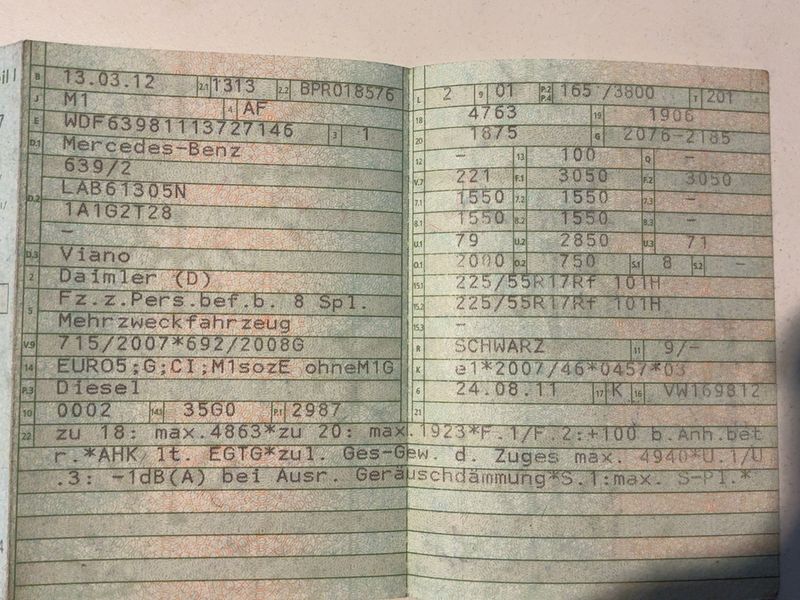 B 13.03.12 2.1 1313 2.2 BPR018576
J M1 4 AF
E WDF63981113727146 3 1
D.1 Mercedes-Benz
639/2
D.2 LAB61305N
1A1G2T28
-
D.3 Viano
2 Daimler (D)
5 Fz.z.Pers.bef.b. 8 Spl.
Mehrzweckfahrzeug
V.9 715/2007*692/2008G
14 EURO5;G;CI;M1sozE ohneM1G
P.3 Diesel
10 0002 14.1 35G0 P.1 2987
L 2 9 01 P.2 P.4 165 /3800 T 201
18 4763 19 1906
20 1875 G 2076-2185
12 - 13 100 Q -
V.7 221 F.1 3050 F.2 3050
7.1 1550 7.2 1550 7.3 -
8.1 1550 8.2 1550 8.3 -
U.1 79 U.2 2850 U.3 71
O.1 2000 O.2 750 S.1 8 S.2 -
15.1 225/55R17Rf 101H
15.2 225/55R17Rf 101H
15.3 -
R SCHWARZ 11 9/-
K e1*2007/46*0457*03
6 24.08.11 17 K 16 VW169812
21
22 zu 18: max.4863*zu 20: max.1923*F.1/F.2:+100 b.Anh.bet
r.*AHK lt. EGTG*zul. Ges-Gew. d. Zuges max. 4940*U.1/U
.3: -1dB(A) bei Ausr. Geräuschdämmung*S.1:max. S-Pl.*